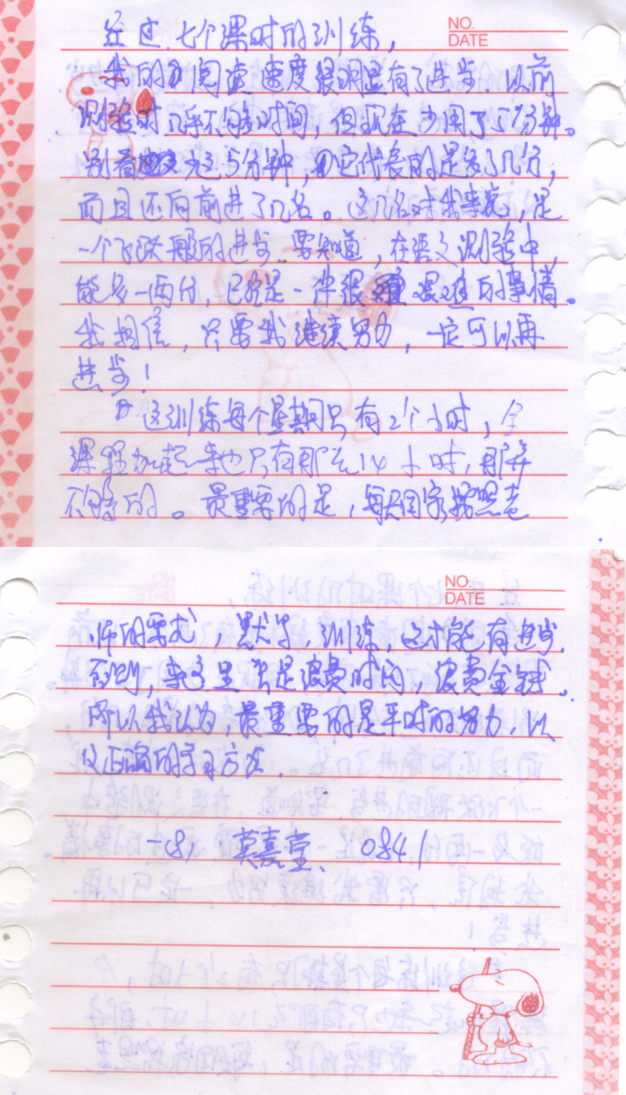 NO.
DATE
经过七个课时的训练,
我的阅读速度很明显有了进步.以前
测验时几乎不够时间,但现在少用了5分钟。
别看少这5分钟,它代表的是多了几分,
而且还向前进了几名。这几名对我来说,是
一个飞跃般的进步.要知道,在语文测验中,
能多一两分,已经是一件很艰难的事情。
我相信,只要我继续努力,一定可以再
进步!
这训练每个星期只有2个小时,全
课程加起来也只有那么14小时,那是
不够的。最重要的是,每天回家按照老
NO.
DATE
师的要求,默写,训练,这才能有进步.
否则,来这里只是浪费时间,浪费金钱.
所以我认为,最重要的是平时的努力,以
及正确的学习方法.
莫嘉莹 0841